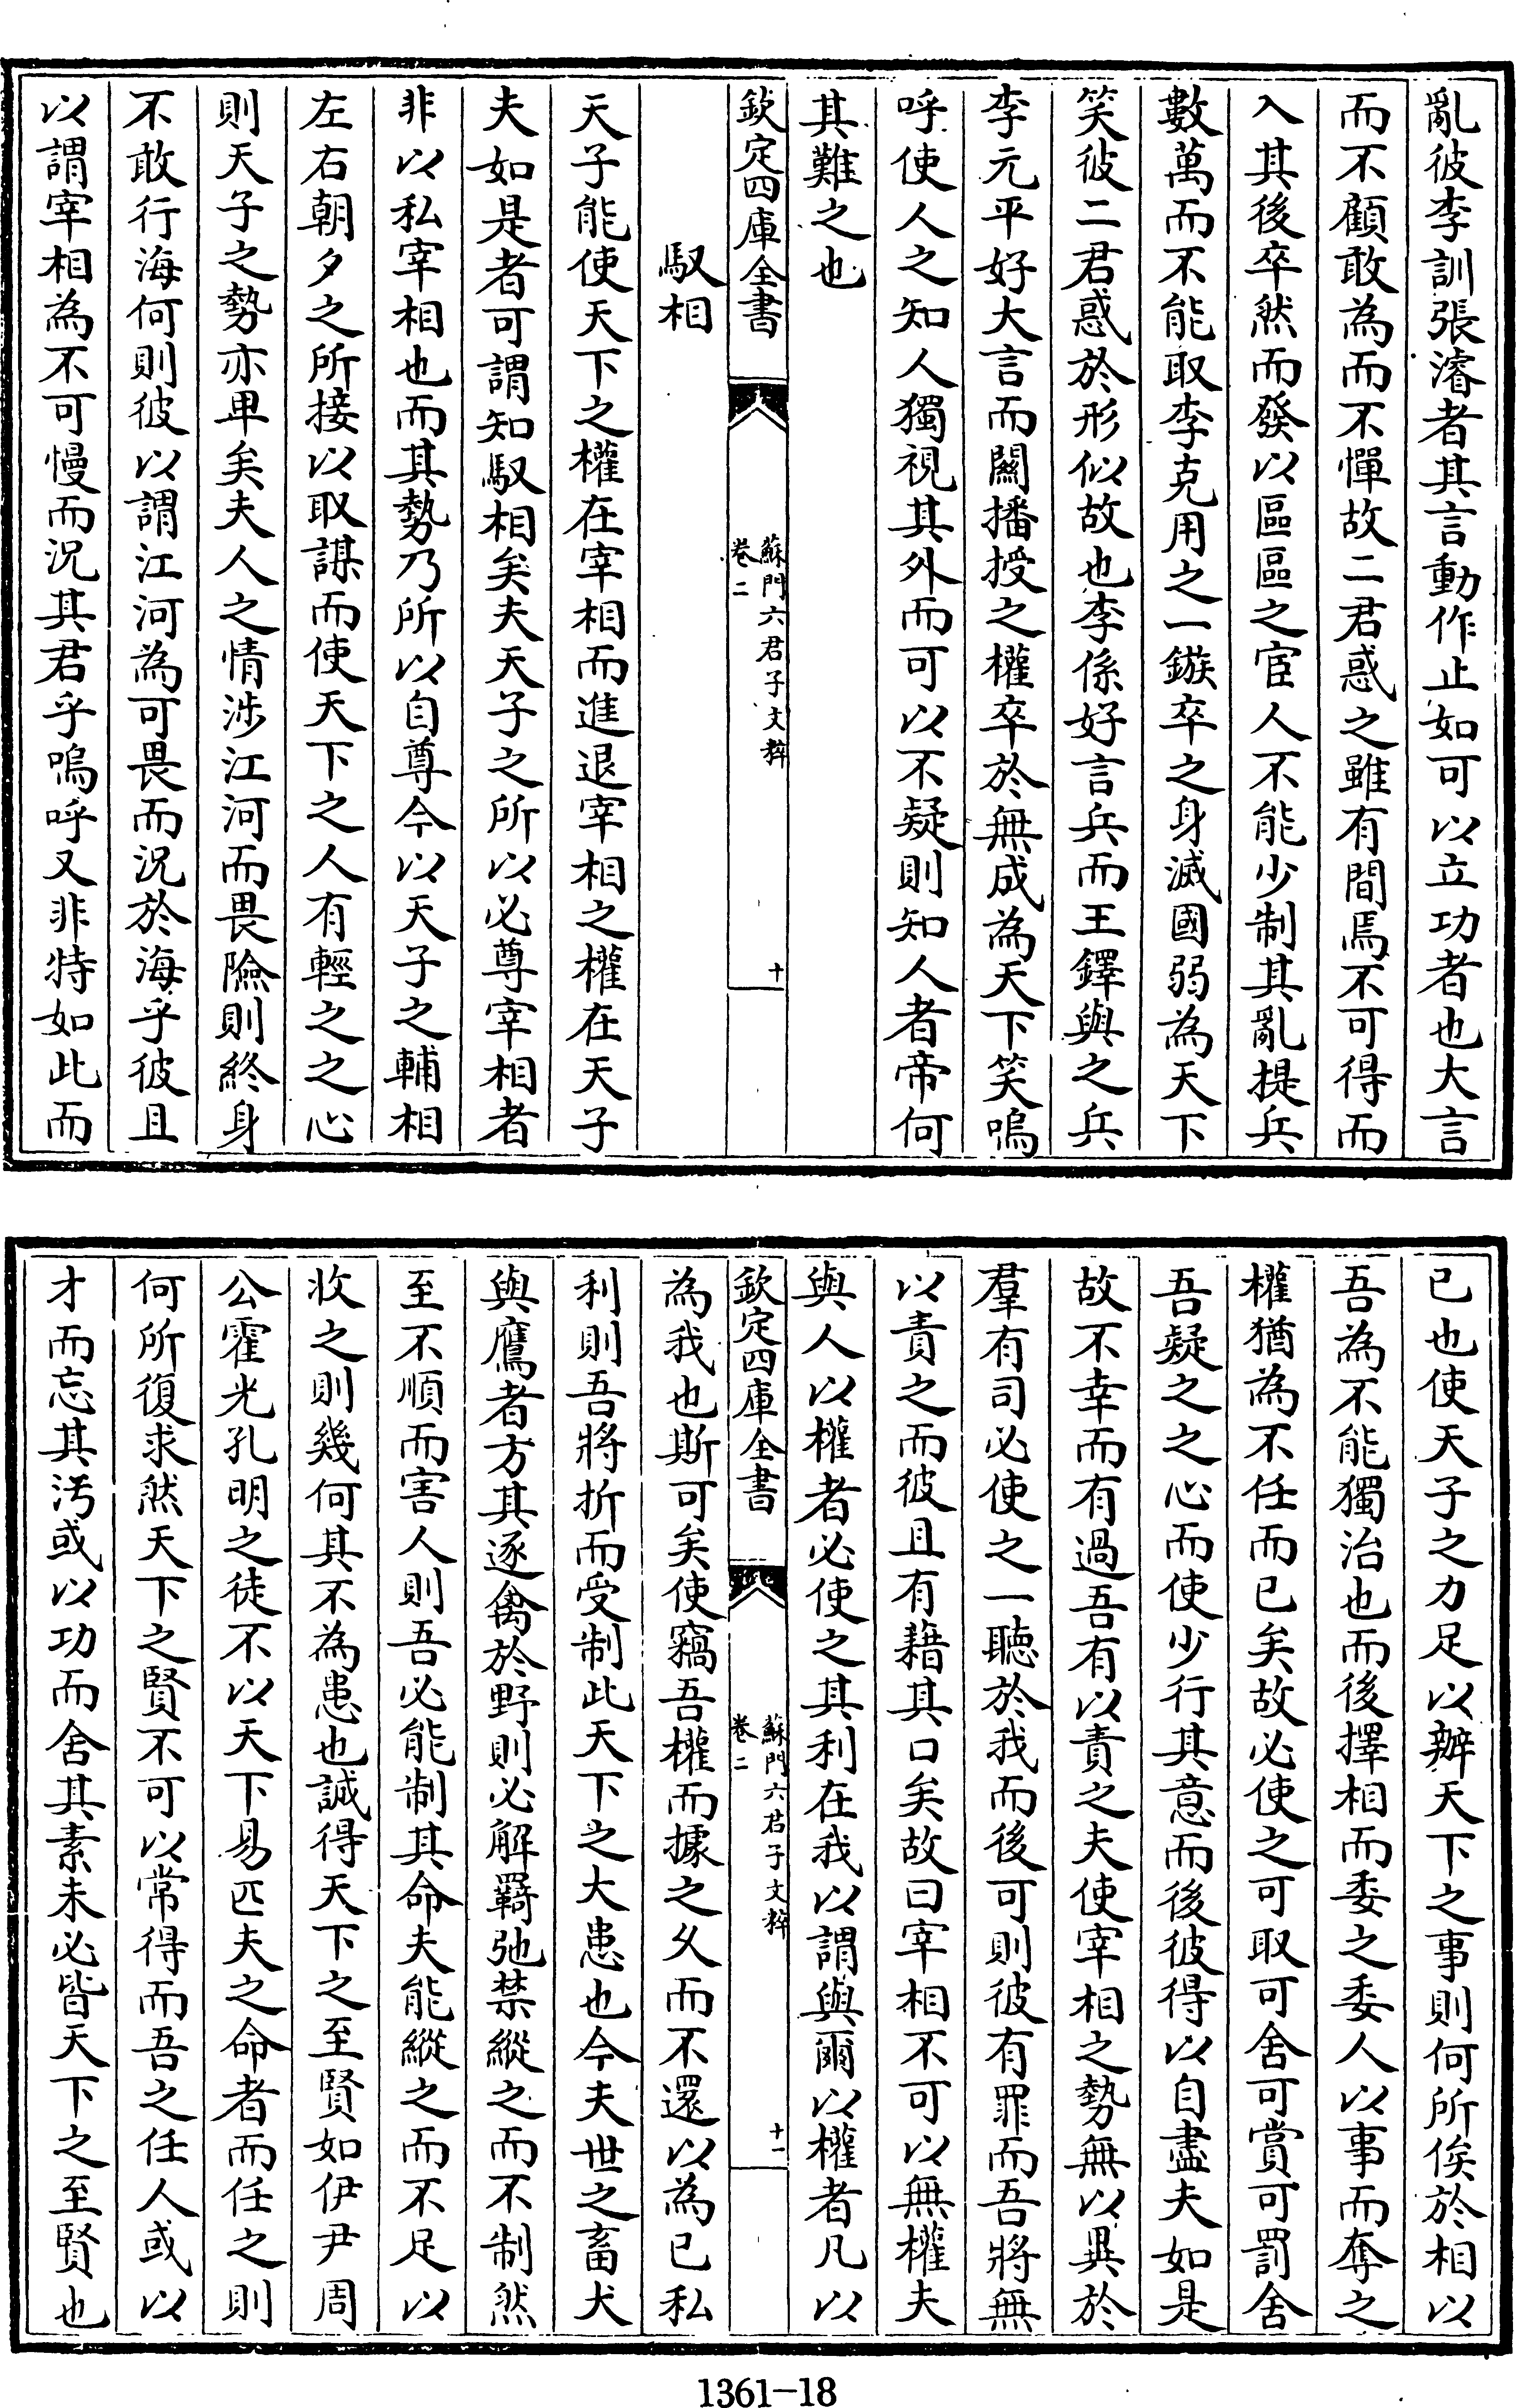 亂彼李訓張濬者其言動作止如可以立功者也大言
而不顧敢為而不憚故二君惑之雖有間焉不可得而
入其後卒然而發以區區之宦人不能少制其亂提兵
數萬而不能取李克用之一鏃卒之身滅國弱為天下
笑彼二君惑於形似故也李係好言兵而王鐸與之兵
李元平好大言而關播授之權卒於無成為天下笑嗚
呼使人之知人獨視其外而可以不疑則知人者帝何
其難之也
欽定四庫全書
蘇門六君子文粹
卷二
十
馭相
天子能使天下之權在宰相而進退宰相之權在天子
夫如是者可謂知馭相矣夫天子之所以必尊宰相者
非以私宰相也而其勢乃所以自尊今以天子之輔相
左右朝夕之所接以取謀而使天下之人有輕之之心
則天子之勢亦卑矣夫人之情涉江河而畏險則終身
不敢行海何則彼以謂江河為可畏而況於海乎彼且
以謂宰相為不可慢而況其君乎嗚呼又非特如此而
已也使天子之力足以辦天下之事則何所俟於相以
吾為不能獨治也而後擇相而委之委人以事而奪之
權猶為不任而已矣故必使之可取可舍可賞可罰舍
吾疑之之心而使少行其意而後彼得以自盡夫如是
故不幸而有過吾有以責之夫使宰相之勢無以異於
羣有司必使之一聽於我而後可則彼有罪而吾將無
以責之而彼且有藉其口矣故曰宰相不可以無權夫
與人以權者必使之其利在我以謂與爾以權者凡以
欽定四庫全書
蘇門六君子文粹
卷二
十一
為我也斯可矣使竊吾權而據之久而不還以為已私
利則吾將折而受制此天下之大患也今夫世之畜犬
與鷹者方其逐禽於野則必解羇弛禁縱之而不制然
至不順而害人則吾必能制其命夫能縱之而不足以
收之則幾何其不為患也誠得天下之至賢如伊尹周
公霍光孔明之徒不以天下易匹夫之命者而任之則
何所復求然天下之賢不可以常得而吾之任人或以
才而忘其汚或以功而舍其素未必皆天下之至賢也
1361—18